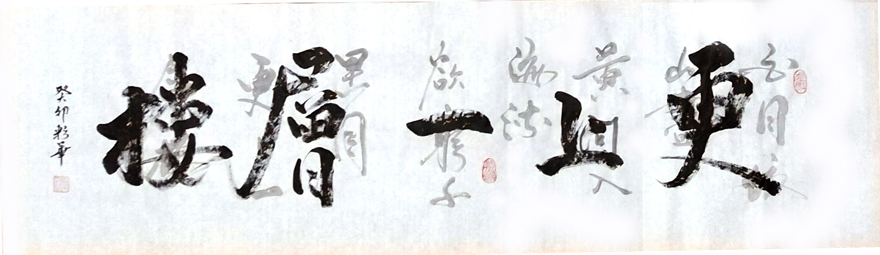 更上一層樓
白日依
山盡
黃河入
海流
欲窮千
里目
更上一
癸卯彩華